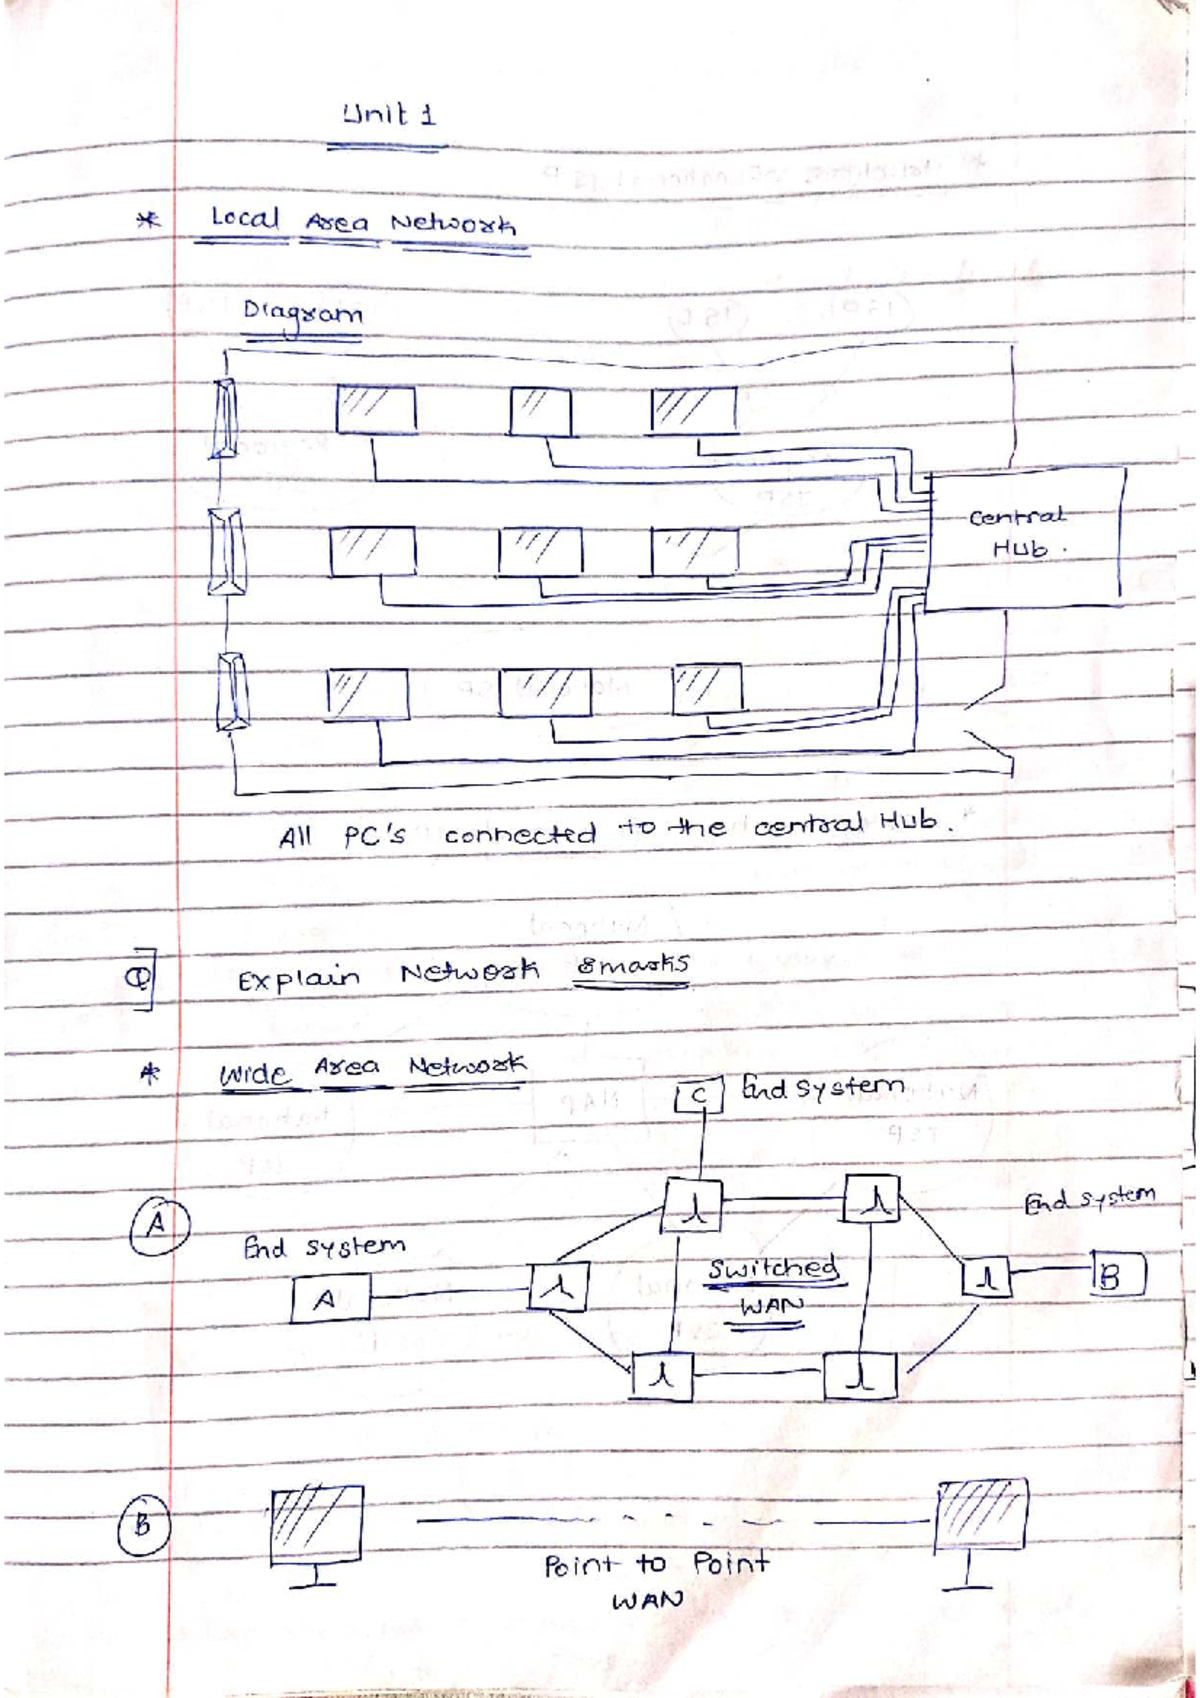 Unit 1
* Local Area Network
Diagram
Central
Hub.
All PC's connected to the central Hub.
Q Explain Network 8marks
* Wide Area Network
C End system
A
End system
End system
A
Switched
WAN
B
B
Point to Point
WAN